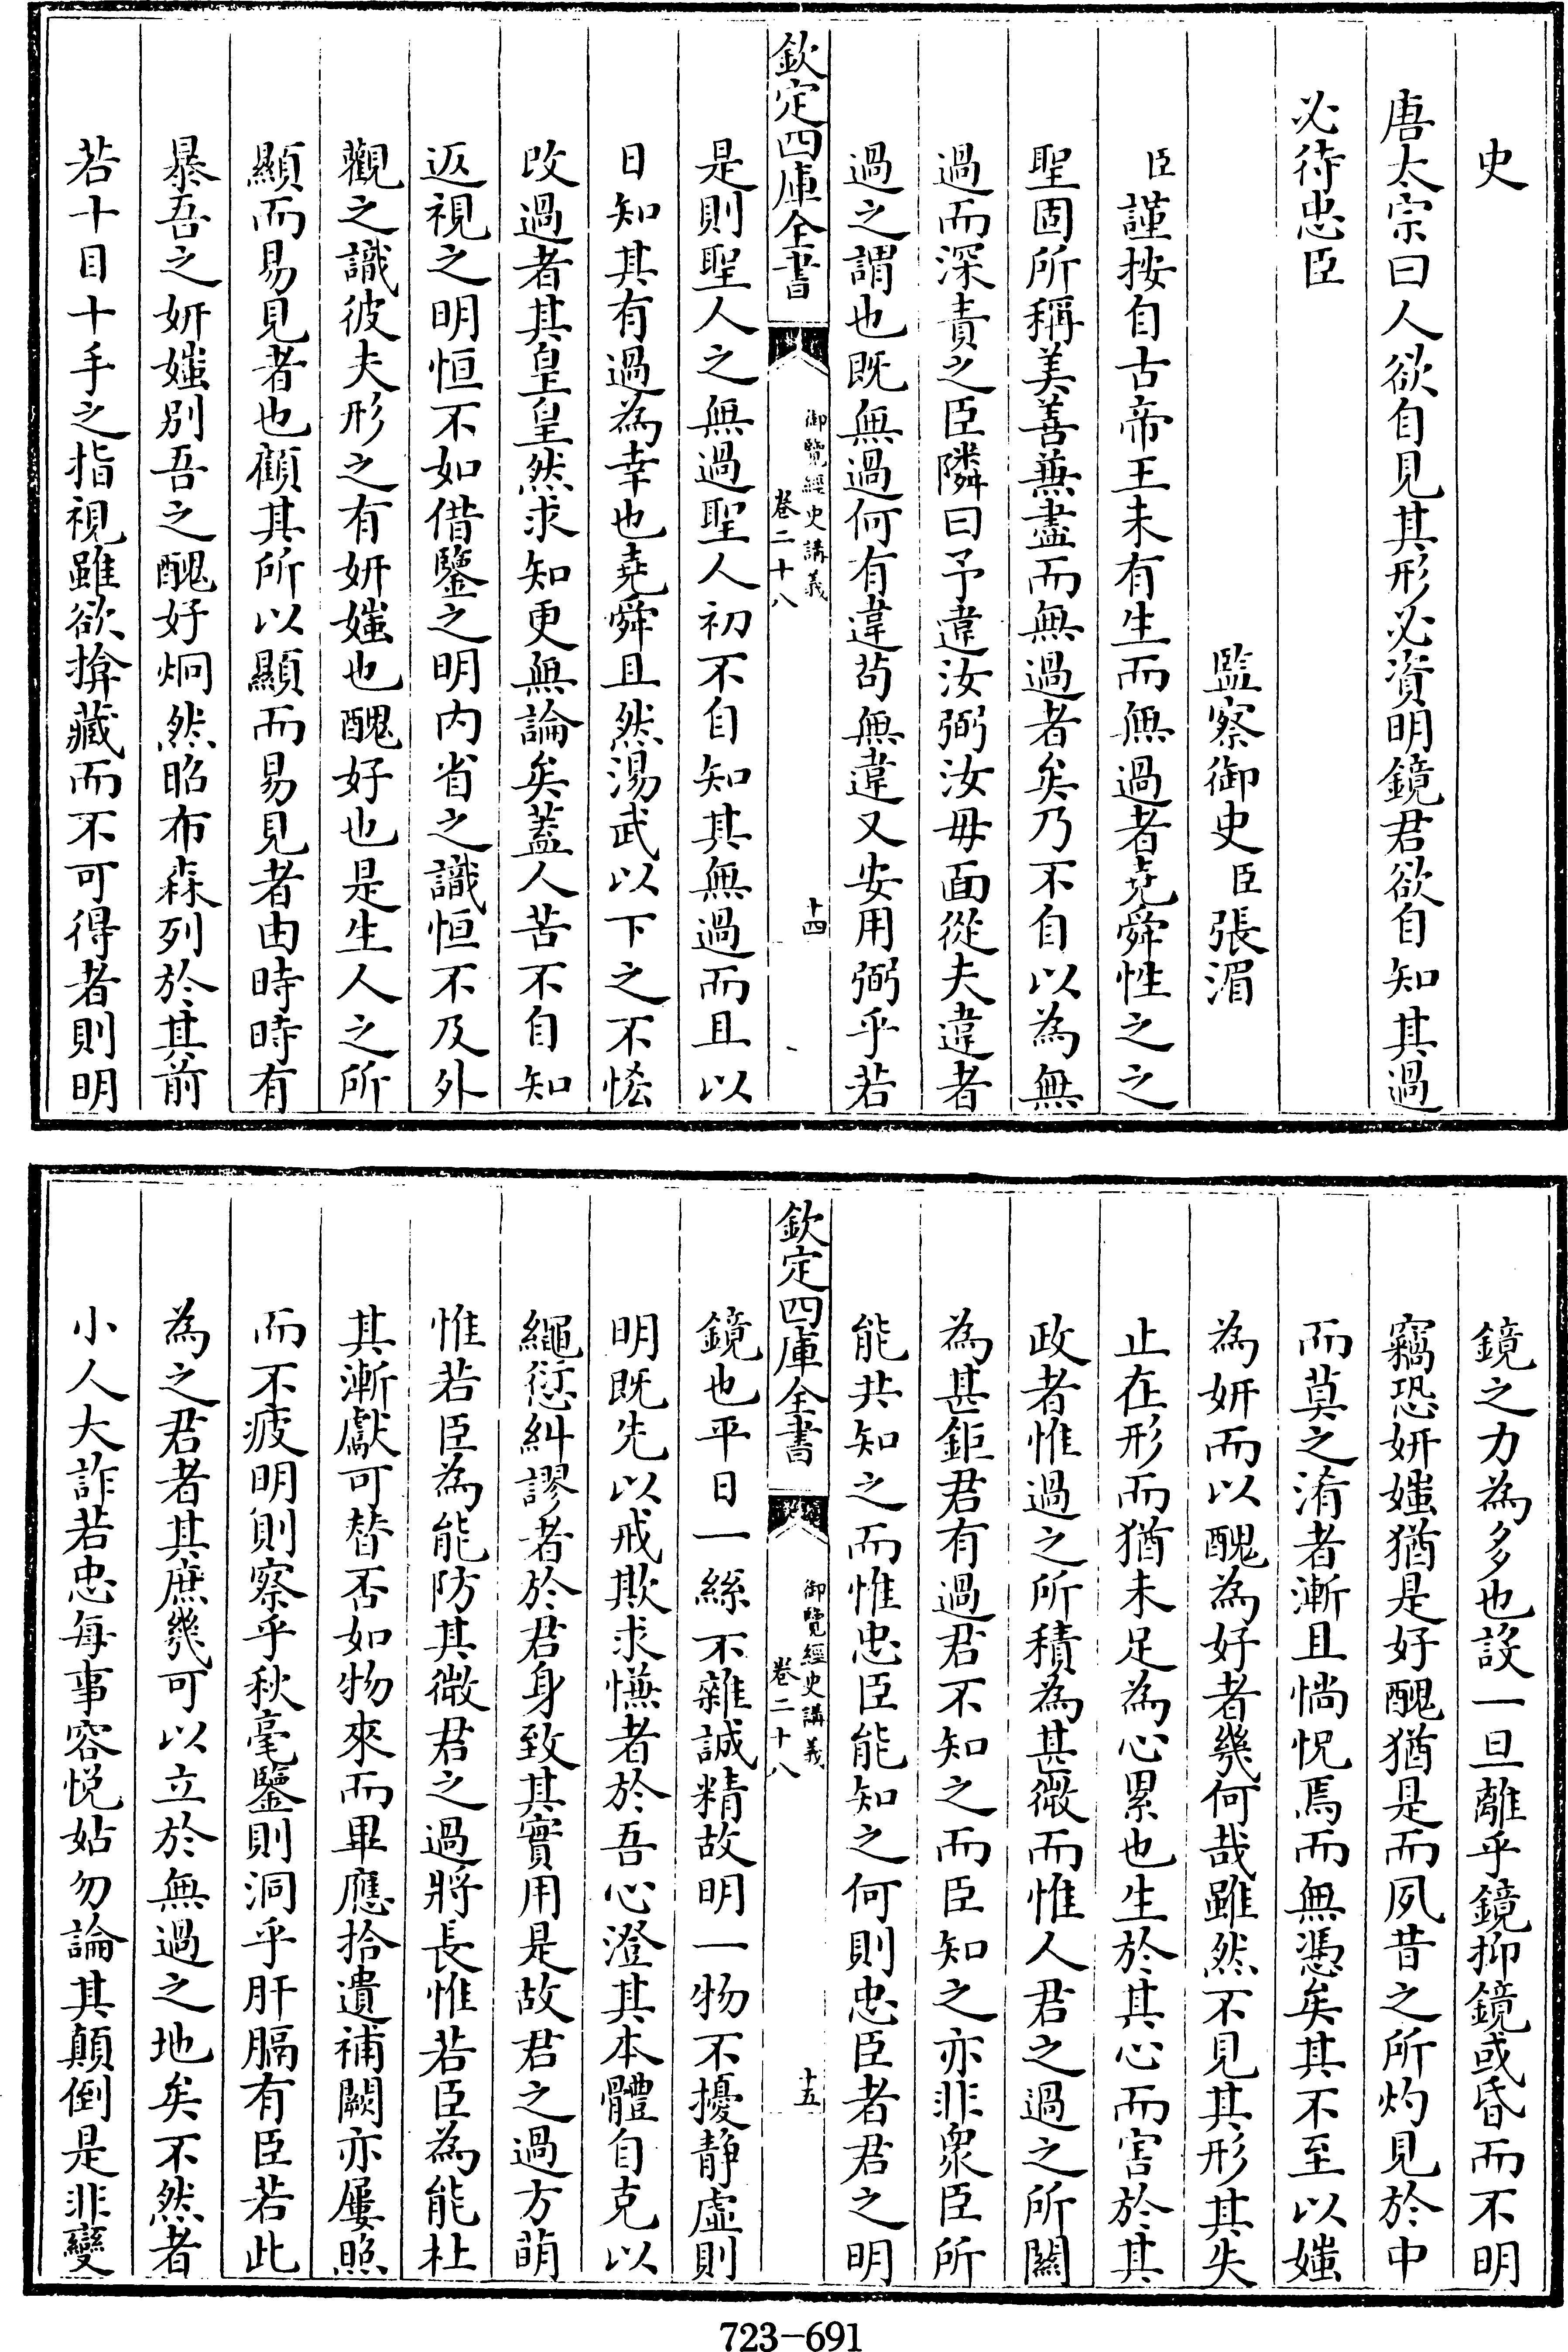 史
唐太宗曰人欲自見其形必資明鏡君欲自知其過
必待忠臣
監察御史臣張湄
臣謹按自古帝王未有生而無過者堯舜性之之
聖固所稱美善兼盡而無過者矣乃不自以為無
過而深責之臣隣曰予違汝弼汝毋面從夫違者
過之謂也既無過何有違苟無違又安用弼乎若
欽定四庫全書
御覽經史講義
卷二十八
十四
是則聖人之無過聖人初不自知其無過而且以
日知其有過為幸也堯舜且然湯武以下之不恡
改過者其皇皇然求知更無論矣蓋人苦不自知
返視之明恒不如借鑒之明内省之識恒不及外
觀之識彼夫形之有妍媸也醜好也是生人之所
顯而易見者也顧其所以顯而易見者由時時有
暴吾之妍媸别吾之醜好炯然昭布森列於其前
若十目十手之指視雖欲揜藏而不可得者則明
鏡之力為多也設一旦離乎鏡抑鏡或昏而不明
竊恐妍媸猶是好醜猶是而夙昔之所灼見於中
而莫之淆者漸且惝怳焉而無憑矣其不至以媸
為妍而以醜為好者幾何哉雖然不見其形其失
止在形而猶未足為心累也生於其心而害於其
政者惟過之所積為甚微而惟人君之過之所關
為甚鉅君有過君不知之而臣知之亦非衆臣所
能共知之而惟忠臣能知之何則忠臣者君之明
欽定四庫全書
御覽經史講義
卷二十八
十五
鏡也平日一絲不雜誠精故明一物不擾静虛則
明既先以戒欺求慊者於吾心澄其本體自克以
繩愆糾謬者於君身致其實用是故君之過方萌
惟若臣為能防其微君之過將長惟若臣為能杜
其漸獻可替否如物來而畢應拾遺補闕亦屢照
而不疲明則察乎秋毫鑒則洞乎肝膈有臣若此
為之君者其庶幾可以立於無過之地矣不然者
小人大詐若忠每事容悦姑勿論其顛倒是非變
723-691